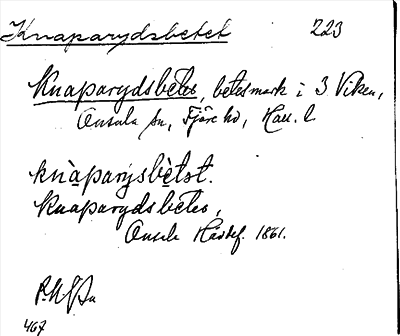 Knaparydsbetet 223
Knaparydsbetes, betesmark i 3 Viken,
Onsala sn, Fjäre hd, Hall. l
knàparỳsbètət.
Knaparydsbetes,
Onsala Härdef. 1861.
467